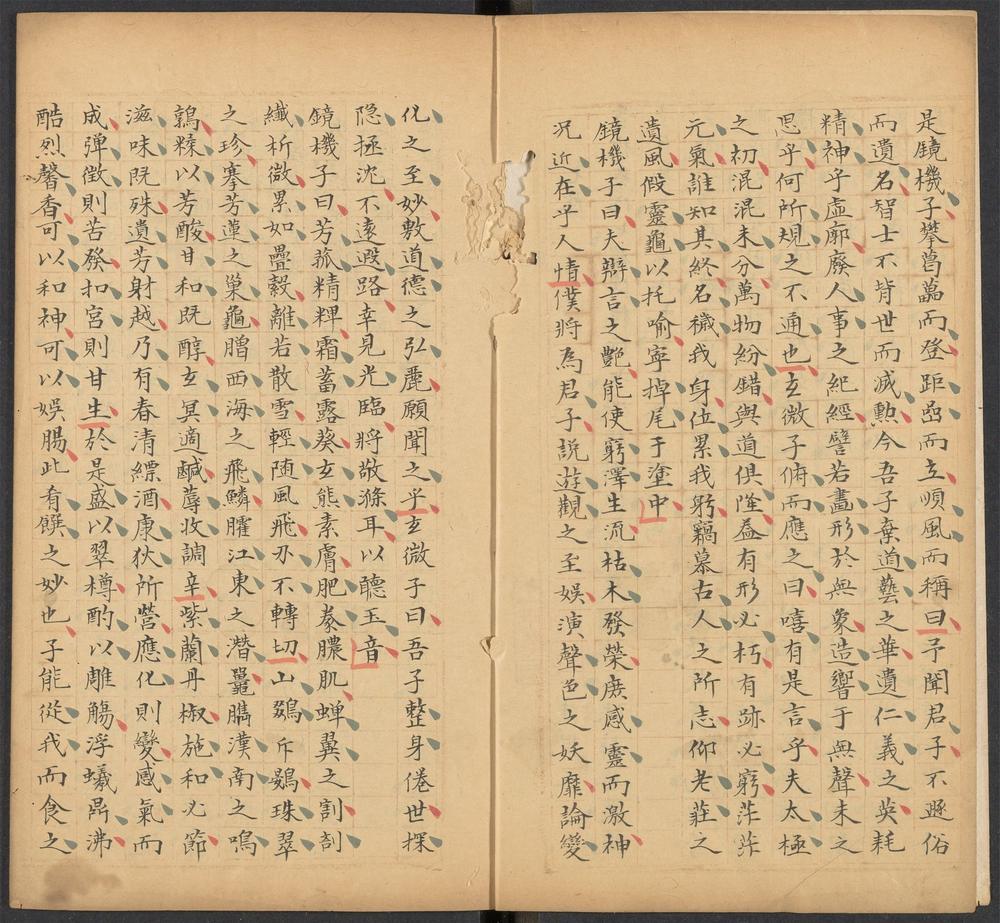 是鏡機子攀葛藟而登距嵒而立順風而稱曰予聞君子不遯俗
而遺名智士不背世而滅勲今吾子棄道藝之華遺仁義之英耗
精神乎虛廓廢人事之紀經譬若畫形於無象造響于無聲未之
思乎何所規之不通也玄微子俯而應之曰嘻有是言乎夫太極
之初混混未分萬物紛錯與道俱隆益有形必朽有跡必窮茫茫
元氣誰知其終名穢我身位累我躬竊慕古人之所志仰老莊之
遺風假靈龜以托喻寧掉尾于塗中
鏡機子曰夫辯言之艷能使窮澤生流枯木發榮庶感靈而激神
况近在乎人情僕將為君子說遊觀之至娛演聲色之妖靡論變
化之至妙敷道德之弘麗願聞之乎玄微子曰吾子整身倦世探
隐拯沈不遠遐路幸見光臨將敬滌耳以聽玉音
鏡機子曰芳菰精粺霜蓄露葵玄熊素膚肥豢膿肌蟬翼之割剖
纖析微累如疊縠離若散雪輕随風飛刃不轉切山鵽斥鷃珠翠
之珍搴芳蓮之巢龜膾西海之飛鱗臛江東之潛鼉臇漢南之鳴
鶉糅以芳酸甘和既醇玄冥適鹹蓐收調辛紫蘭丹椒施和必節
滋味既殊遺芳射越乃有春清縹酒康狄所營應化則變感氣而
成彈徵則苦發扣宮則甘生於是盛以翠樽酌以雕觴浮蟻鼎沸
酷烈馨香可以和神可以娛腸此肴饌之妙也子能從我而食之